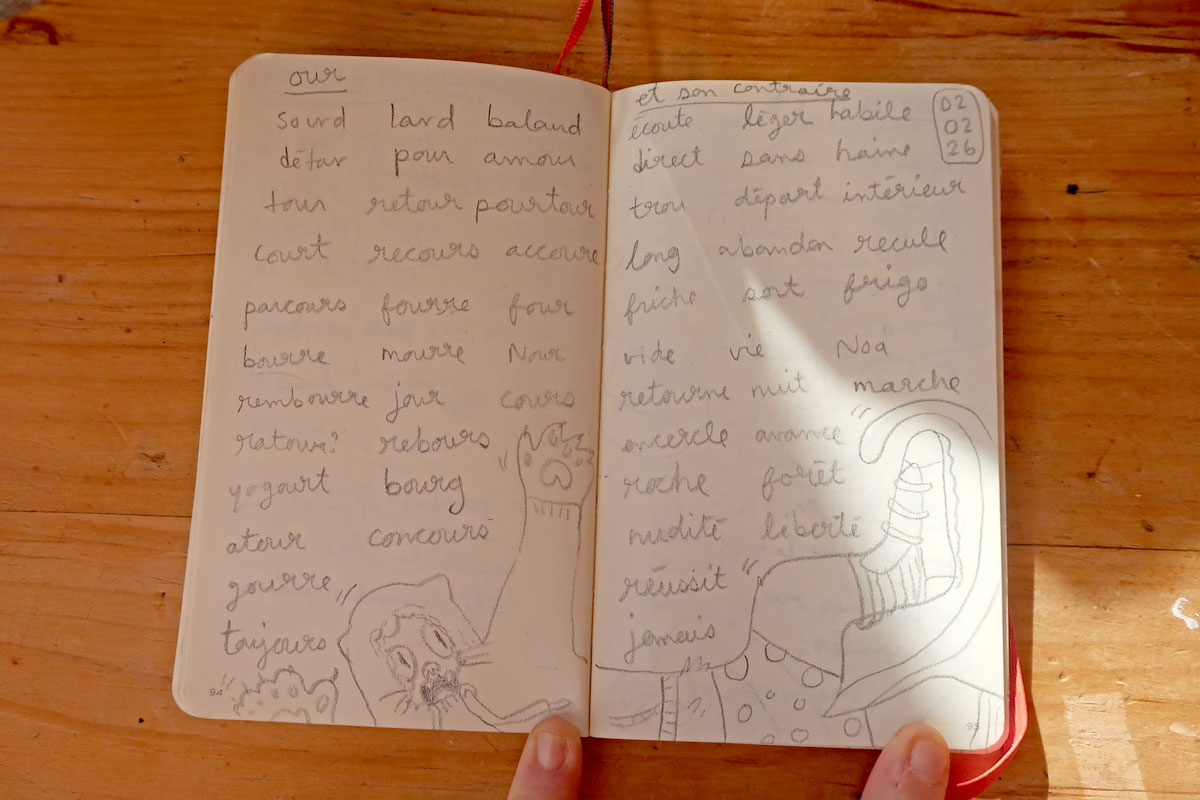 our
sourd lard balaud
détour pour amour
tour retour pourtour
court recours accoure
parcours fourre four
bourre mourre Nour
rembourre jour cours
ratour? rebours
yogourt bourg
atour concours
gourre
toujours
94
et son contraire
écoute léger habile
direct sans haine
trou départ intérieur
long abandon recule
friche sort frigo
vide vie Noa
retourne nuit marche
encercle avance
roche forêt
nudité liberté
réussit
jamais
02
02
26
95